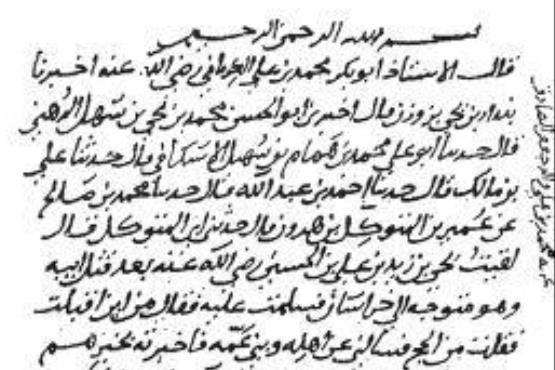 بسم الله الرحمن الرحيم
قال الاستاذ ابو بكر محمد بن علي رضي الله عنه اخبرنا
بندار بن يحيى بن قال اخبرنا ابو الحسن محمد بن يحيى بن سهل الرهني
قال حدثنا ابو علي محمد بن همام بن سهيل الاسكافي قال حدثنا علي
بن مالك قال حدثنا احمد بن عبد الله قال حدثنا محمد بن صالح
عن عمير بن المتوكل بن هرون قال حدثني ابي المتوكل قال
لقيت يحيى بن زيد بن علي بن الحسين رضي الله عنه بعد قتل ابيه
وهو متوجه الى خراسان فسلمت عليه فقال من اين اقبلت
فقلت من الحج فسالني عن اهله وبني عمه فاخبرته بخبرهم